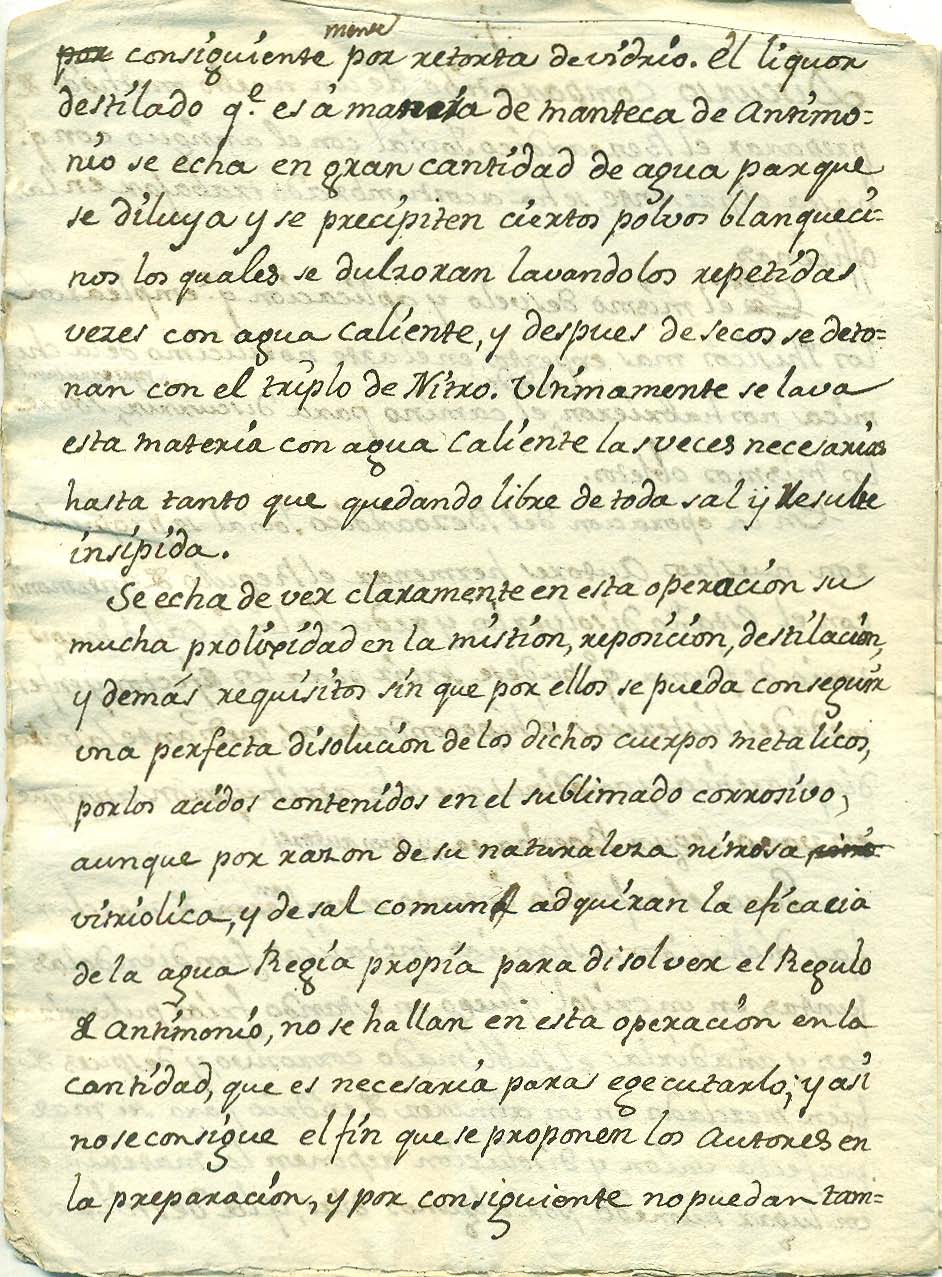 por consiguientemente por retorta de vidrio. El liquor
destilado q.e es à manera de manteca de Antimo=
nio se echa en gran cantidad de agua par que
se diluya y se precipiten ciertos polvos blanqueci=
nos los quales se dulzoran lavandolos repetidas
vezes con agua caliente, y despues de secos se deto=
nan con el triplo de Nitro. Ultimamente se lava
esta materia con agua caliente las veces necesarias
hasta tanto que quedando libre de toda sal
insipida.
Se echa de ver claramente en esta operacion su
mucha prolixidad en la mistion, reposicion, destilacion,
y demás requisitos sin que por ellos se pueda conseguir
una perfecta disolucion de los dichos cuerpos metalicos,
por los acidos contenidos en el sublimado corrosivo,
aunque por razon de su naturaleza nitrosa
vitriolica, y de sal comun adquiran la eficacia
de la agua Regia propia para disolver el Regulo
de Antimonio, no se hallan en esta operacion en la
cantidad, que es necesaria para egecutarlo; y asi
no se consigue el fin que se proponen los Autores en
la preparacion, y por consiguiente no puedan tam=